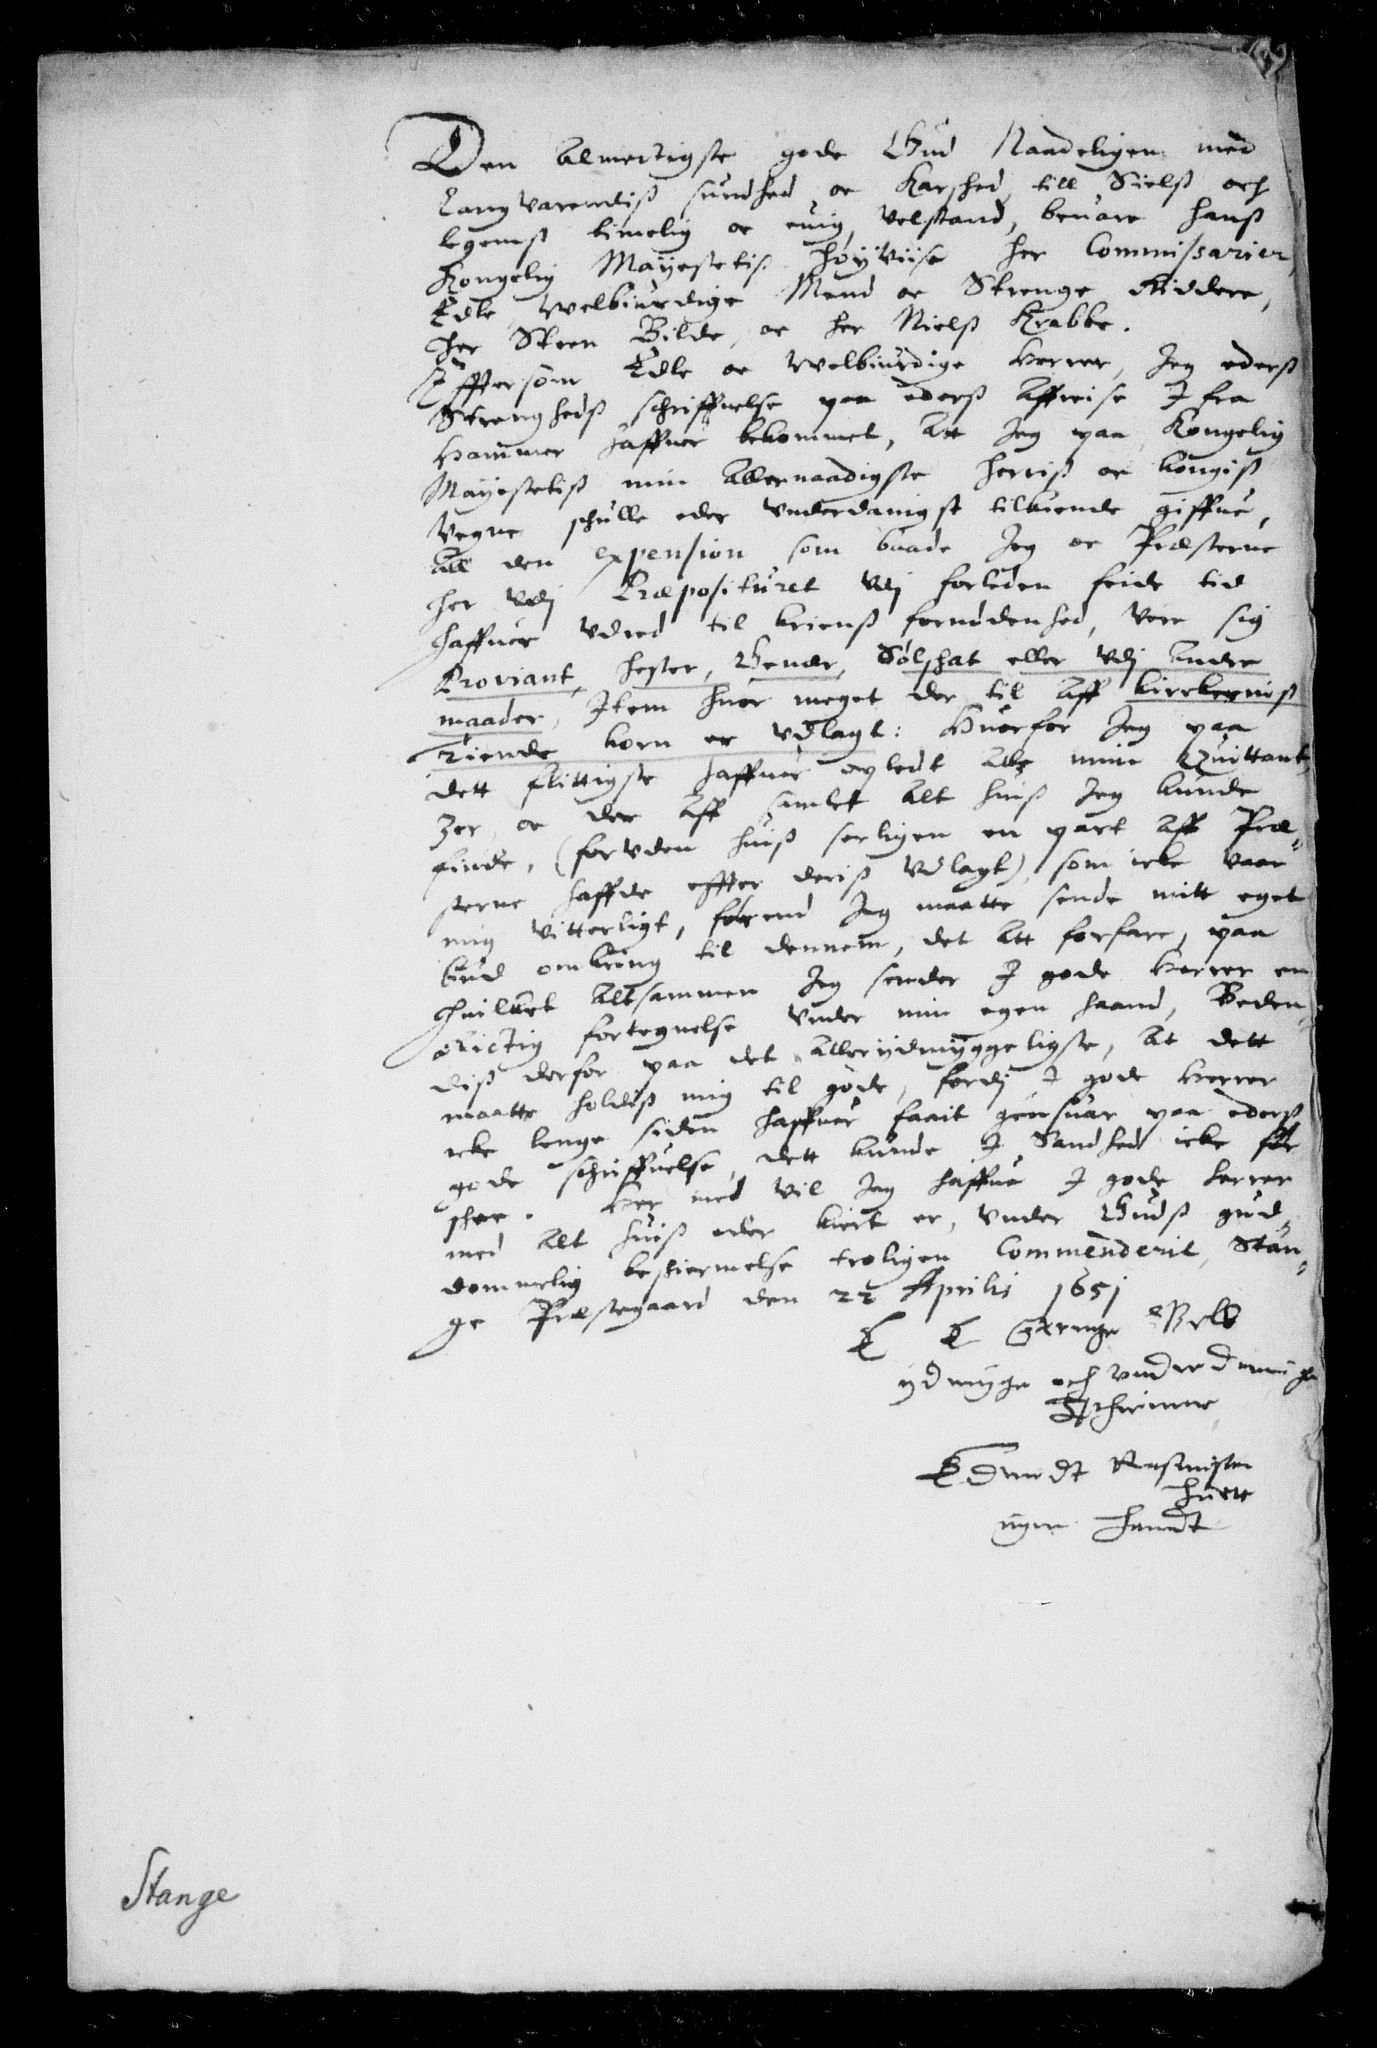 Den Almectigste gode Gud Naadeligen med
Langvarendis sundhed oc Karshed till Siels och
legems timelig oc euig velstand, beuare hans
Kongelig Mayestetis høyviise her Commissarier,
Edle welbiurdige Mend oc Strenge Riddere,
Her Steen Bilde, oc her Niels Krabbe.
Effttersom Edle oc Welbiurdige Herrer, Jeg eders
Strengheds schriffuelse paa eders Affreise J fra
Hammer haffuer bekommet, Att Jeg paa Kongelig
Mayestetis min Allernaadigste herris oc kongis
Vegne schulle eder Vnderdanigst tilkiende giffue,
All den expension som baade Jeg oc Præsterne
Her vdj Præposituret Vdj forleden feide tid
haffuer Vdred til kriens fornødenhed, Vere sig
Proviant, hester, Geuær, Sølfhat eller Vdj Andre
maader, Jtem huor meget der til Aff kirckernis
Tiende korn er Vdlagt: Huorfor Jeg paa
dett flittigste haffuer opledt Alle mine Quittant,
zer, oc der Aff samlet Alt huis Jeg kunde
finde, (foruden huis serligen en part Aff Præ,,
sterne haffde effter deris Vdlagt), som icke vaar
mig Vitterligt, førend Jeg maatte sende mitt eget
Bud omkring til dennem, det Att forfare, paa
huilket Altsammen Jeg sender J gode Herrer en
Rictig fortegnelse Vnder min egen haand, Beden,
dis derfor paa det Allerydmyggeligste, At dett
maatte holdis mig til gode, fordj J gode Herrer
icke lenge siden haffuer faait gensuar paa eders
gode schriffuelse, dett kunde J Sandhed icke før
schee. Her med vil Jeg haffue J gode herrer
med Alt huis eder kiert er, Vnder Guds gud,,
dommelig beschiermelse troligen Commenderit, Stan,,
ge Præstegaard den 22 Aprilis 1651
E E Strenge
ydmyge och vnderdanige
Thienner
egen handt
Stange